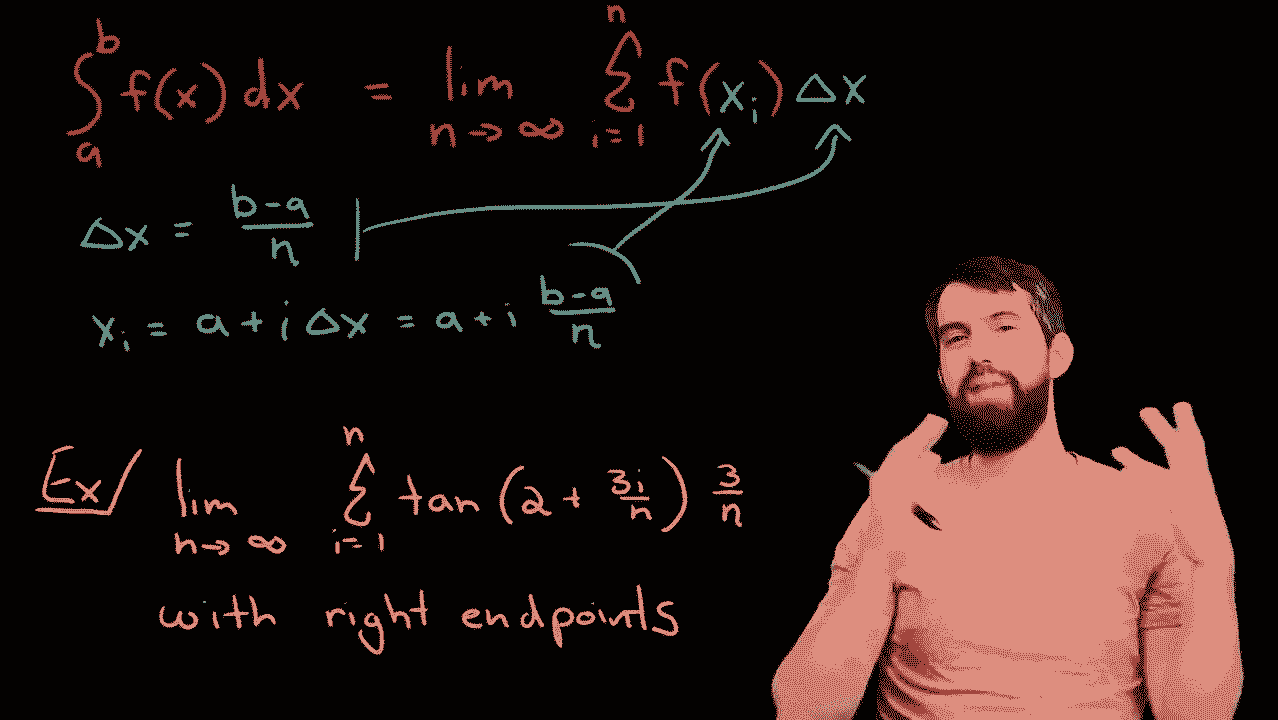 ∫_a^b f(x) dx = lim_{n→∞} Σ_{i=1}^n f(x_i) Δx
Δx = (b-a)/n
x_i = a + i Δx = a + i (b-a)/n
Ex/ lim_{n→∞} Σ_{i=1}^n tan (2 + 3i/n) 3/n
with right endpoints